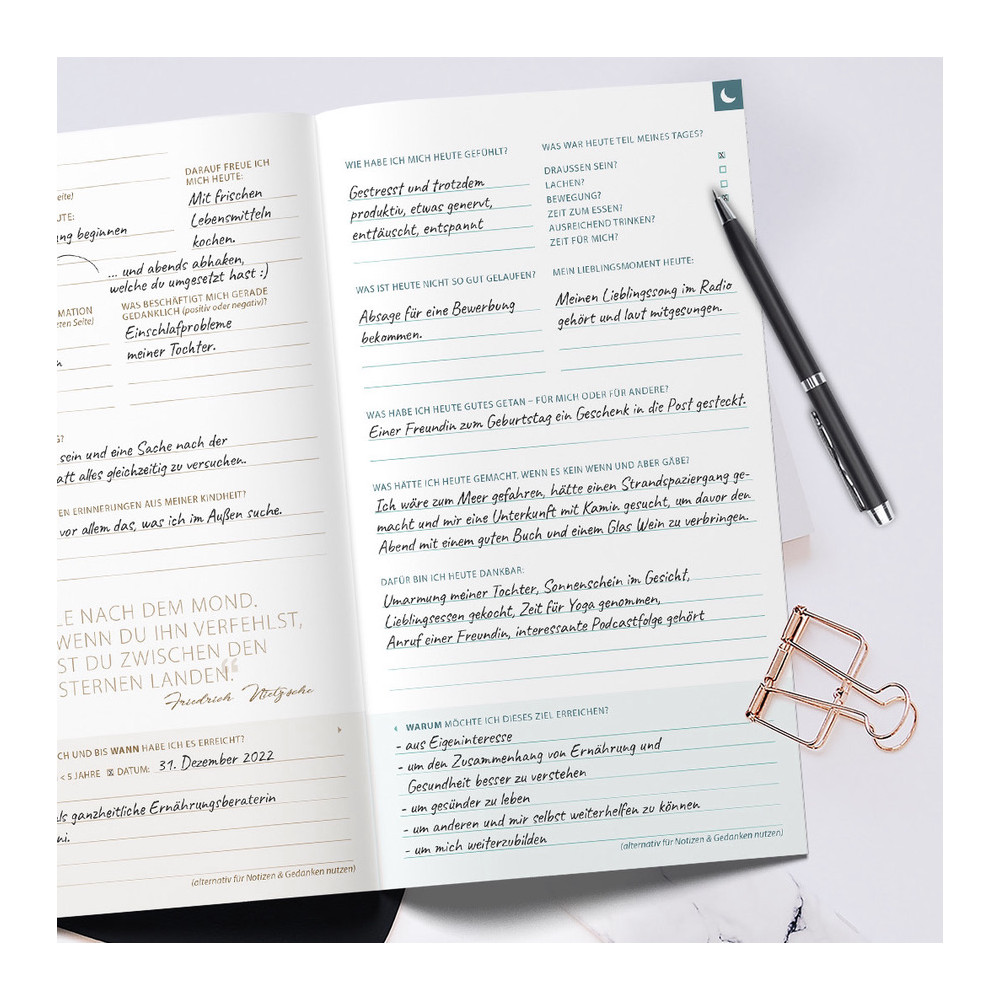 eite)
DARAUF FREUE ICH
MICH HEUTE:
Mit frischen
Lebensmitteln
kochen.
UTE:
ng beginnen
... und abends abhaken,
welche du umgesetzt hast :)
MATION
zten Seite)
WAS BESCHÄFTIGT MICH GERADE
GEDANKLICH (positiv oder negativ)?
Einschlafprobleme
meiner Tochter.
G?
sein und eine Sache nach der
aft alles gleichzeitig zu versuchen.
EN ERINNERUNGEN AUS MEINER KINDHEIT?
vor allem das, was ich im Außen suche.
LE NACH DEM MOND.
WENN DU IHN VERFEHLST,
ST DU ZWISCHEN DEN
STERNEN LANDEN.“
Friedrich Nietzsche
CH UND BIS WANN HABE ICH ES ERREICHT?
< 5 JAHRE ☒ DATUM: 31. Dezember 2022
als ganzheitliche Ernährungsberaterin
ni.
(alternativ für Notizen & Gedanken nutzen)
WIE HABE ICH MICH HEUTE GEFÜHLT?
Gestresst und trotzdem
produktiv, etwas genervt,
enttäuscht, entspannt
WAS WAR HEUTE TEIL MEINES TAGES?
DRAUSSEN SEIN?
LACHEN?
BEWEGUNG?
ZEIT ZUM ESSEN?
AUSREICHEND TRINKEN?
ZEIT FÜR MICH?
WAS IST HEUTE NICHT SO GUT GELAUFEN?
Absage für eine Bewerbung
bekommen.
MEIN LIEBLINGSMOMENT HEUTE:
Meinen Lieblingssong im Radio
gehört und laut mitgesungen.
WAS HABE ICH HEUTE GUTES GETAN – FÜR MICH ODER FÜR ANDERE?
Einer Freundin zum Geburtstag ein Geschenk in die Post gesteckt.
WAS HÄTTE ICH HEUTE GEMACHT, WENN ES KEIN WENN UND ABER GÄBE?
Ich wäre zum Meer gefahren, hätte einen Strandspaziergang ge-
macht und mir eine Unterkunft mit Kamin gesucht, um davor den
Abend mit einem guten Buch und einem Glas Wein zu verbringen.
DAFÜR BIN ICH HEUTE DANKBAR:
Umarmung meiner Tochter, Sonnenschein im Gesicht,
Lieblingsessen gekocht, Zeit für Yoga genommen,
Anruf einer Freundin, interessante Podcastfolge gehört
WARUM MÖCHTE ICH DIESES ZIEL ERREICHEN?
- aus Eigeninteresse
- um den Zusammenhang von Ernährung und
Gesundheit besser zu verstehen
- um gesünder zu leben
- um anderen und mir selbst weiterhelfen zu können
- um mich weiterzubilden
(alternativ für Notizen & Gedanken nutzen)